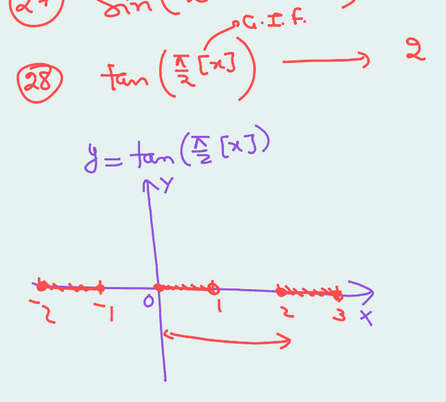 27 sin(
G.I.F.
28 tan(π/2 [x]) → 2
y = tan(π/2 [x])
Y
-2 -1 0 1 2 3 X